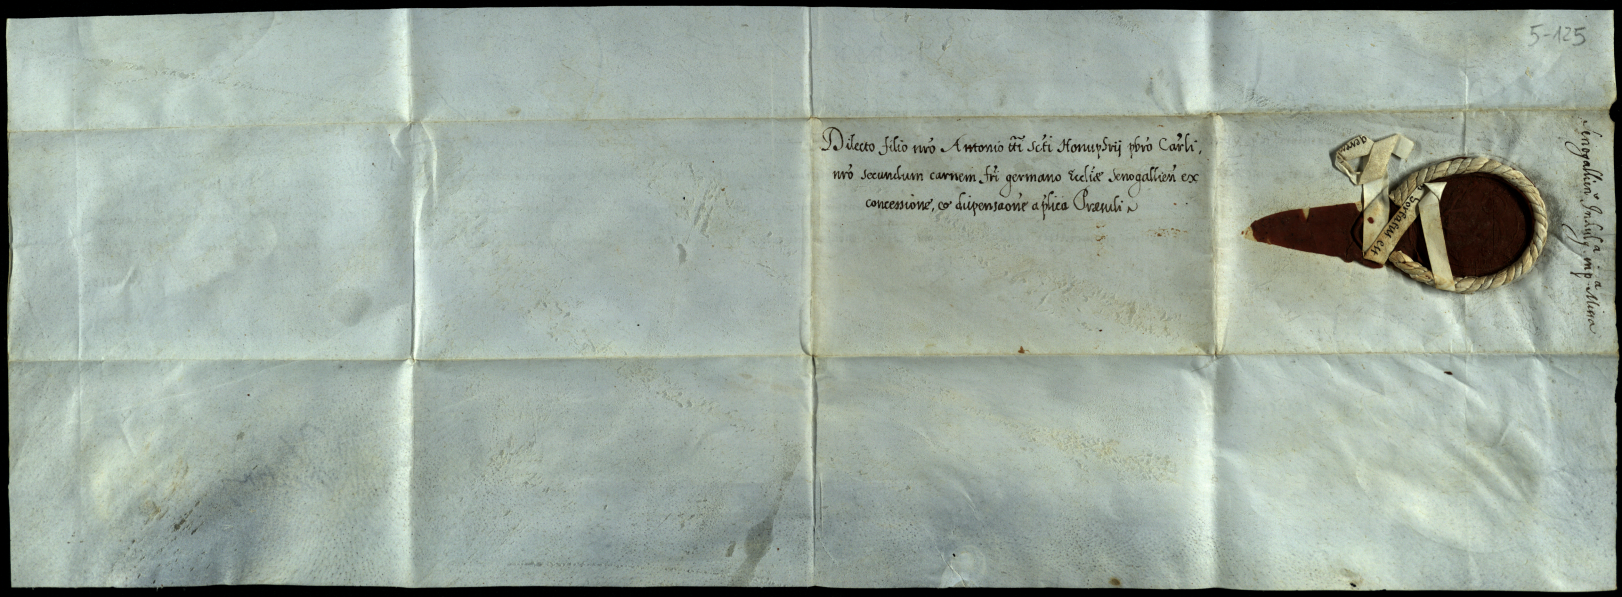 5-125
Dilecto filio nrõ Antonio tt̃i Scti Honuphrij pbrõ Cãrli,
nrõ secundum carnem frĩ germano Eccliæ Senogallieñ ex
concessione, et dispensaoñe aplica Præsuli
Senogallieñ Indulg.
Missa
est